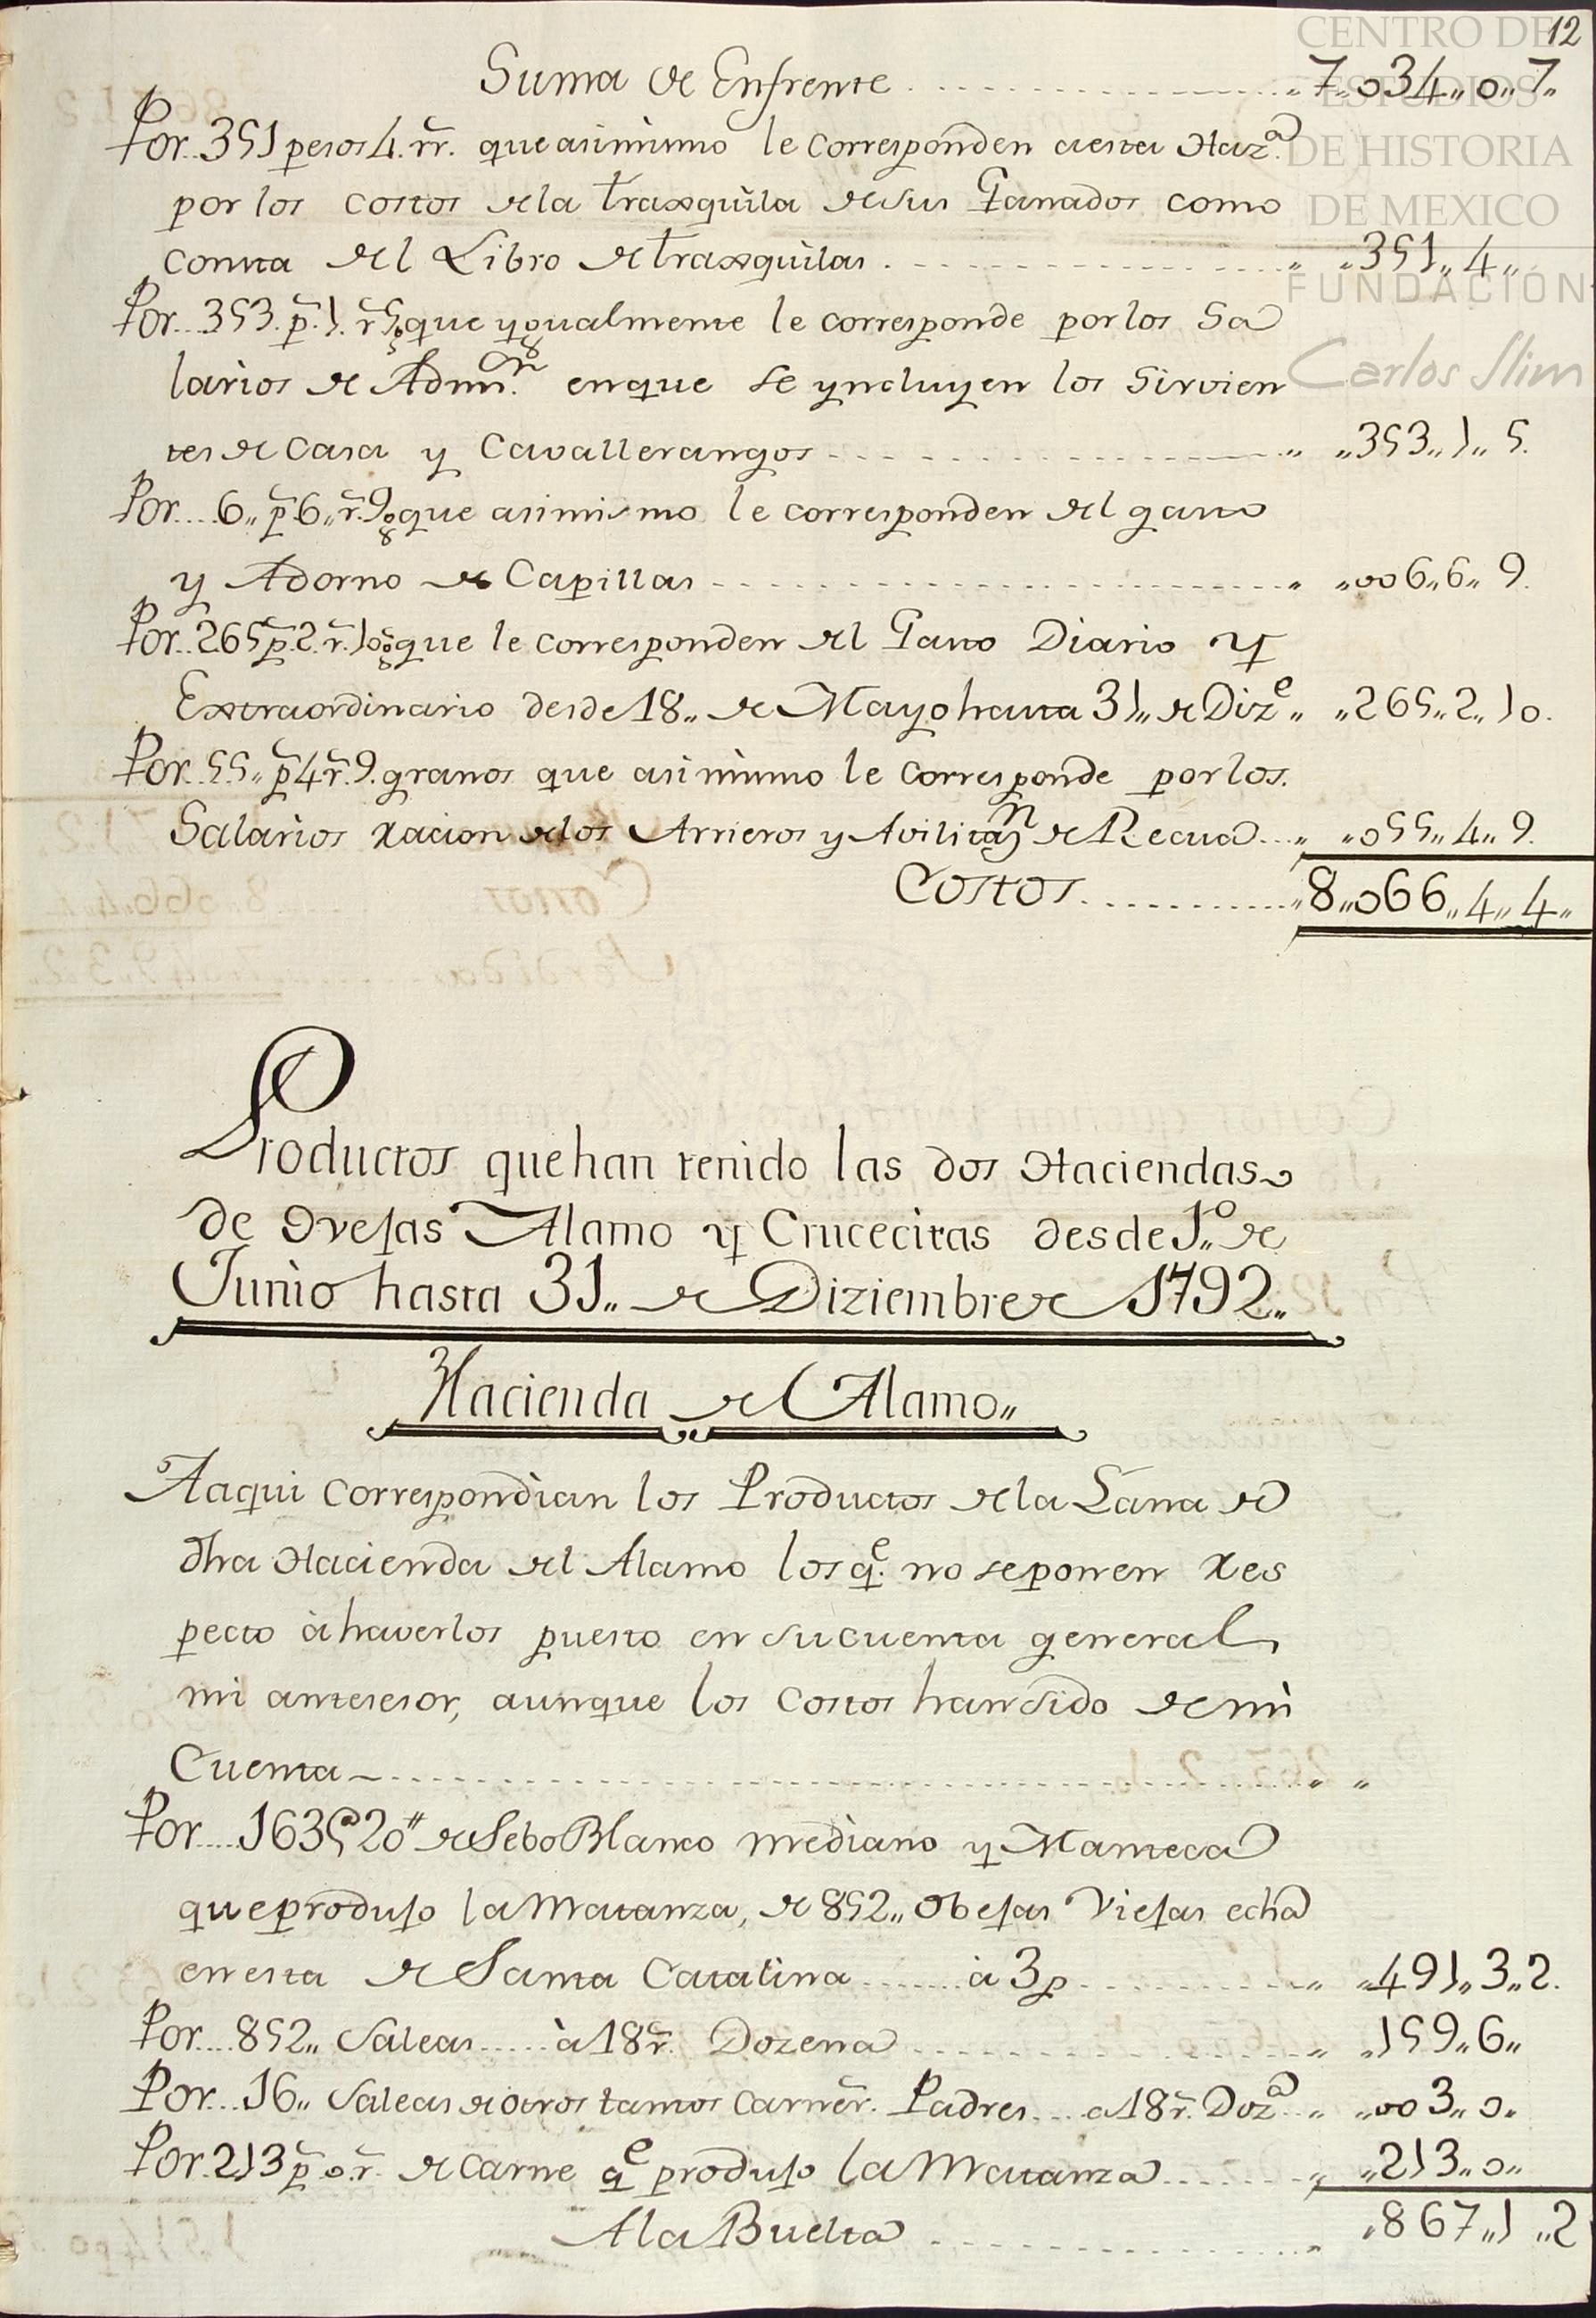 12
CENTRO DE
ESTUDIOS
DE HISTORIA
DE MEXICO
FUNDACIÓN
Carlos Slim
Suma de Enfrente . . . . . . . . . . . . „ 7„034„0„7„
Por..351 pesos 4. rr. que asimismo le corresponden a esta Hazª.
por los costos de la traxquila de sus Ganados como
consta del Libro de traxquilas . . . . . . . . . . „ „351„4„
Por...353. p. 1. r. 5 gˢ que ygualmente le corresponde por los Sa
larios de Admⁿ. en que se yncluyen los Sirvien
tes de Casa y Cavallerangos . . . . . . . . . . „ „353„1„5.
Por....6„ p 6„ r. 9 gˢ que asimismo le corresponden del gasto
y Adorno de Capillas . . . . . . . . . . „ „006„6„9.
Por..265 p. 2. r. 10 gˢ que le corresponden del Gasto Diario y
Extraordinario desde 18„ de Mayo hasta 31„ de Dizᵉ „ „265„2„10.
Por..55„ p 4 r. 9. granos que asimismo le corresponde por los.
Salarios racion de los Arrieros y Avilitaⁿ de Recua... „ „055„4„9.
Costos. . . . . . . . . . . „8„066„4„4„
Productos que han tenido las dos Haciendas
de Ovejas Alamo y Crucecitas desde 1º„ de
Junio hasta 31„ de Diziembre de 1792„
Hacienda del Alamo„
Aaqui correspondian los Productos de la Lana de
dha Hacienda del Alamo los qᵉ. no se ponen res
pecto à haverlos puesto en su cuenta general
mi antesesor, aunque los costos han sido de mi
Cuenta . . . . . . . . . . „ „
Por....163 @ 20 # de Sebo Blanco mediano y Manteca
que produjo la Matanza, de 852„ Obejas Viejas echa
en esta de Santa Catalina ....... à 3 p . . . . . . . . „ „491„3„2.
Por....852„ Saleas ..... à 18 r. Dozena . . . . . . . . . . „ „159„6„
Por...16„ Saleas de otros tantos carner. Padres ... a 18 r. Dozª... „ „003„0„
Por.213 p 0. r. de carne qᵉ produjo la Matanza . . . . . „ „213„0„
A la Buelta . . . . . . . . . . „ „867„1„2